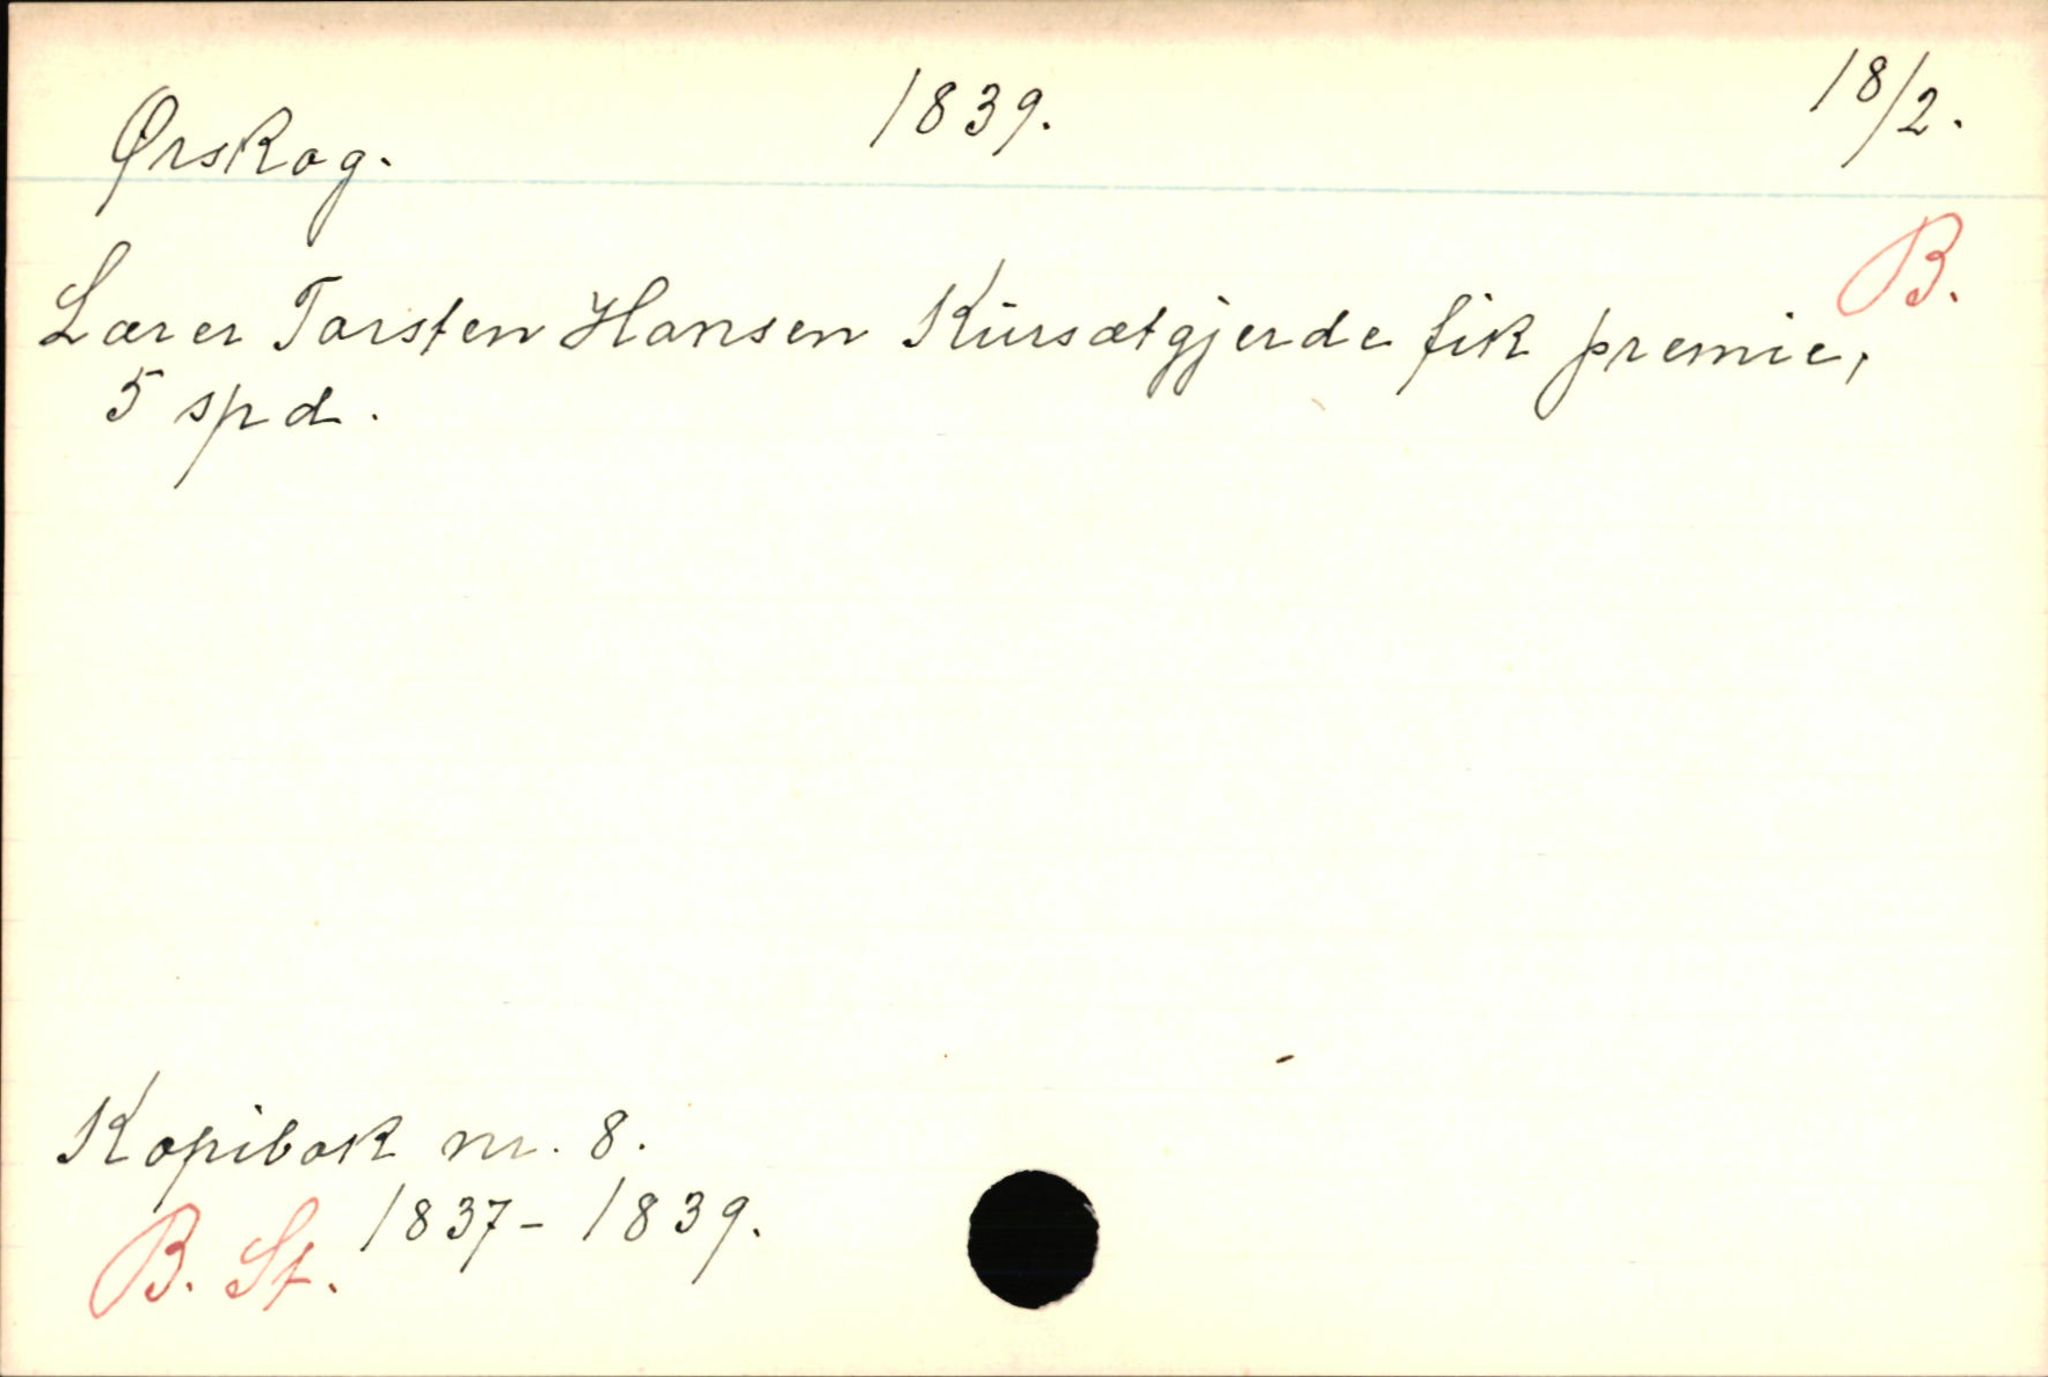 Ørskog. 1839. 18/2.
B.
Lærer Torsten Hansen Kursætgjerde fik premie,
5 spd.
Kopibok nr. 8.
1837-1839.
B. St.